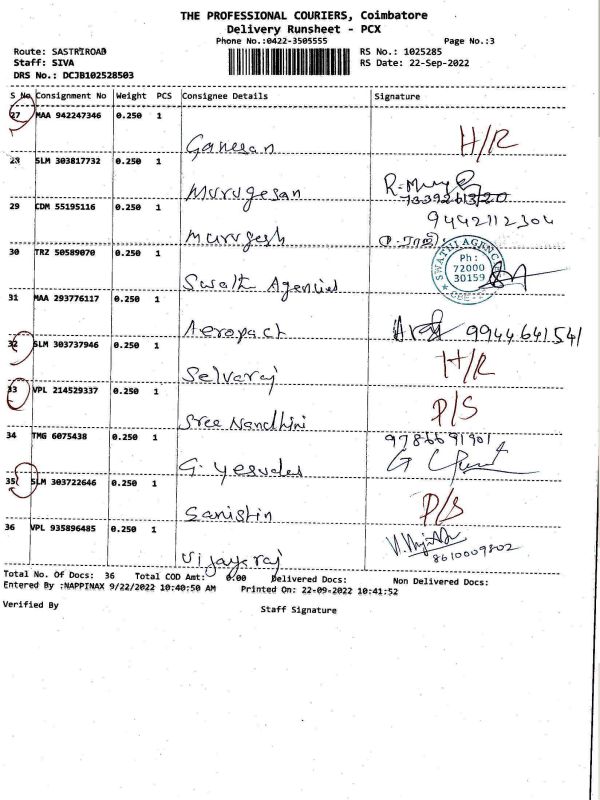 THE PROFESSIONAL COURIERS, Coimbatore
Delivery Runsheet - PCX
Phone No.:0422-3505555
Page No.:3
Route: SASTRIROAD
RS No.: 1025285
Staff: SIVA
RS Date: 22-Sep-2022
DRS No.: DCJB102528503
S No Consignment No Weight PCS Consignee Details Signature
27 MAA 942247346 0.250 1
Ganesan H/R
28 SLM 303817732 0.250 1
Murugesan
29 CDM 55195116 0.250 1
9442112304
Murugesh
30 TRZ 50589070 0.250 1
SWATHI AGENC
Ph:
72000
30159
CBE
31 MAA 293776117 0.250 1
Aeropact 9944641541
32 SLM 303737946 0.250 1
Selvaraj H/R
33 VPL 214529337 0.250 1
Sree Nandhini P/S
34 TMG 6075438 0.250 1
G.
35 SLM 303722646 0.250 1
Sanistin P/S
36 VPL 935896485 0.250 1
Vijayaraj 8610009802
Total No. Of Docs: 36 Total COD Amt: 0.00 Delivered Docs: Non Delivered Docs:
Entered By :NAPPINAX 9/22/2022 10:40:50 AM Printed On: 22-09-2022 10:41:52
Verified By Staff Signature